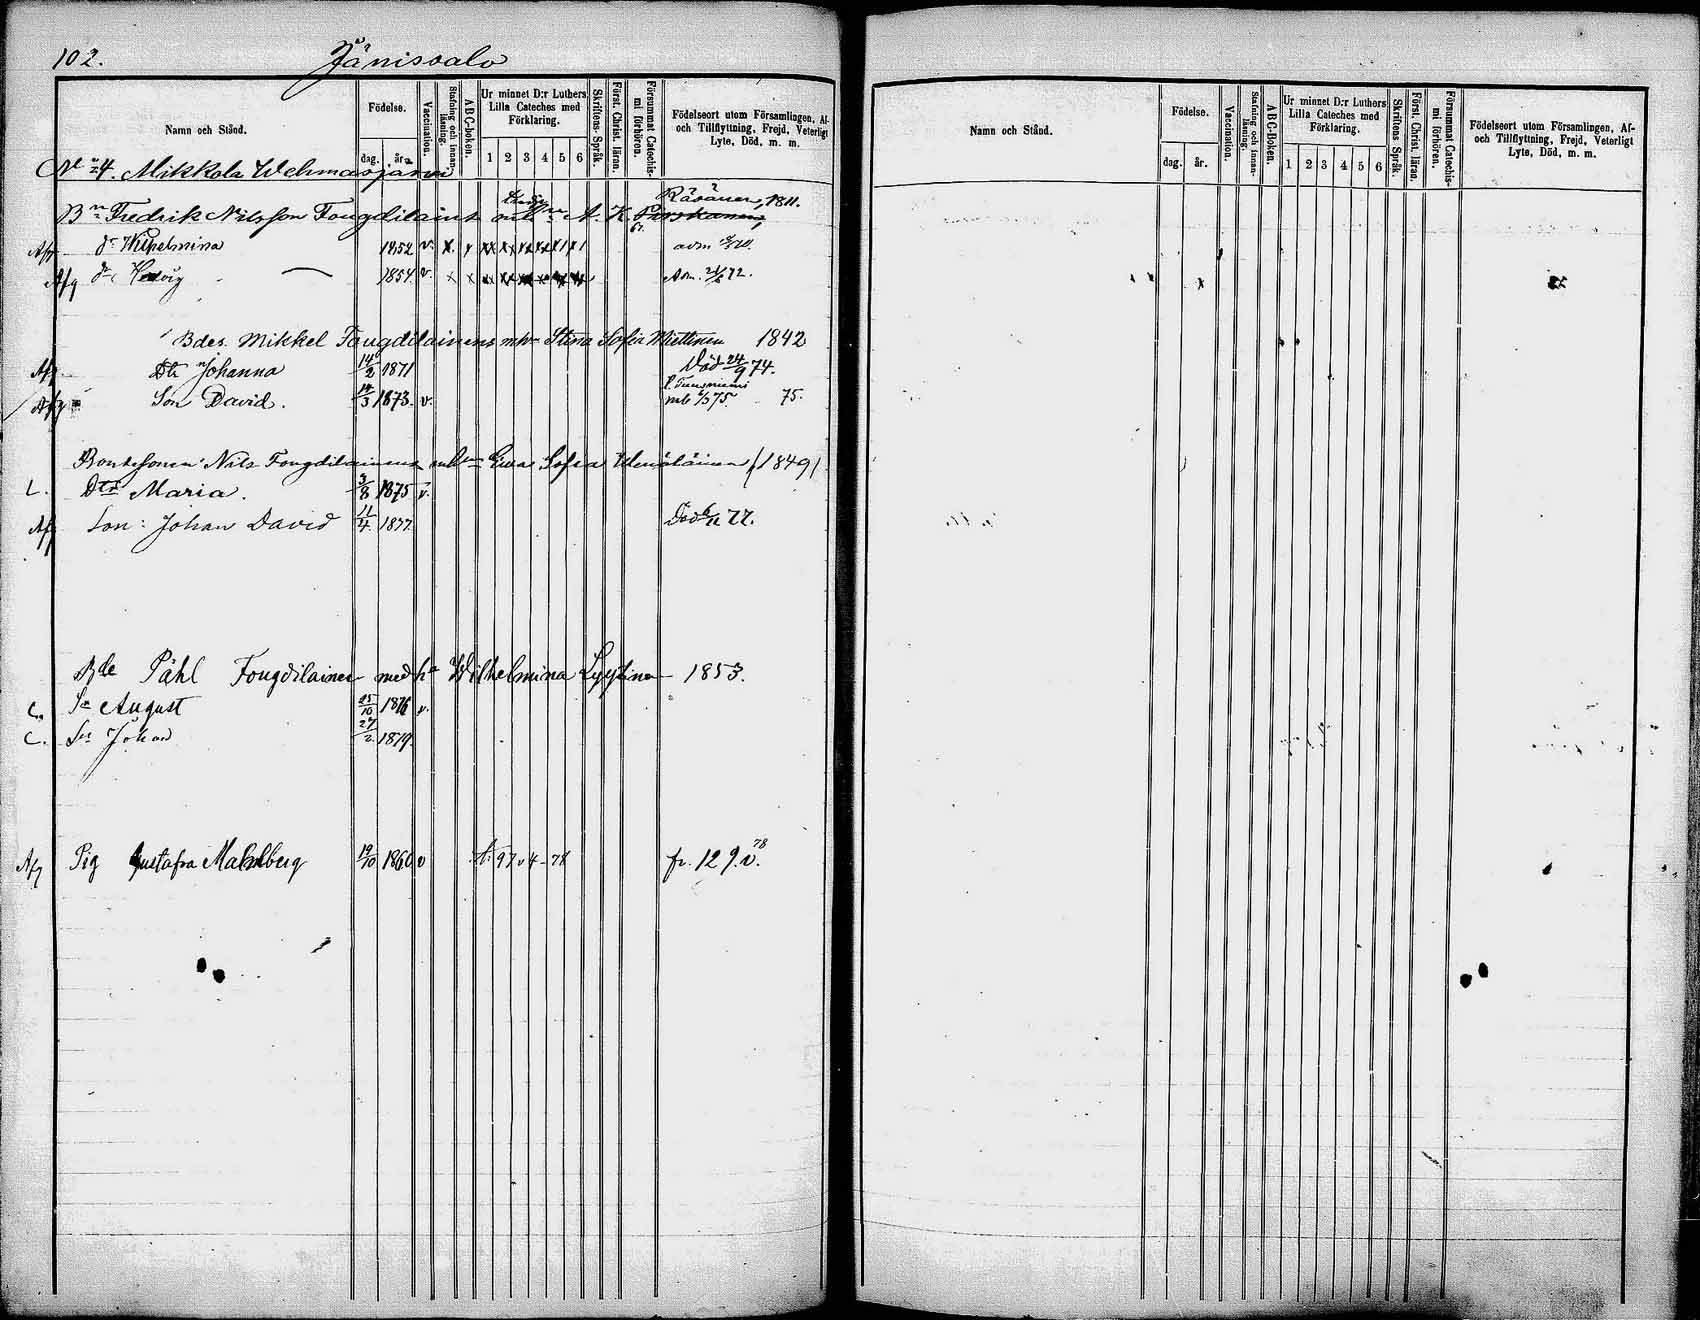 102. Jänissalo
Namn och Stånd.
Födelse.
dag.
år.
Vaccination.
Stafning och innan-läsning.
ABC-boken.
Ur minnet D:r Luthers Lilla Cateches med Förklaring.
1 2 3 4 5 6
Skriftens Språk.
Först. Christ. läran.
Försummat Catechis-mi förhören.
Födelseort utom Församlingen, Af- och Tillflyttning, Frejd, Veterligt Lyte, Död, m. m.
No 4. Mikkola Wehmasjärvi
Räsänen, 1811.
Bn Fredrik Nilsson Fougdilainens A. K.
Afg dr Wilhelmina 1852 v. x x
Afg dr Hedvig — 1854. v. x x Adm. 72.
Bdes. Mikkel Fougdilainens mhu Stina Sofia Miettinen 1842
Afg Dtr Johanna 14/2 1871 Död 24/9 74.
Afg Son David. 1873. v. 75.
Bondesonen Nils Fougdilainens Ewa Sofia (1849)
L. Dtr Maria. 3/8 1875 v.
Afg Son: Johan David 11/4 1877. Död 77.
Bde Påhl Fougdilainen med ha Wilhelmina Lyytinen 1853.
C. Sn August 25/10 1876 v.
C. Sn Johan 27/2 1879.
Afg Pig Gustafva Malmberg 19/10 1860 v 97 v 4-78 fr. 129. v. 78
Namn och Stånd.
Födelse.
dag.
år.
Vaccination.
Stafning och innan-läsning.
ABC-boken.
Ur minnet D:r Luthers Lilla Cateches med Förklaring.
1 2 3 4 5 6
Skriftens Språk.
Först. Christ. läran.
Försummat Catechis-mi förhören.
Födelseort utom Församlingen, Af- och Tillflyttning, Frejd, Veterligt Lyte, Död, m. m.